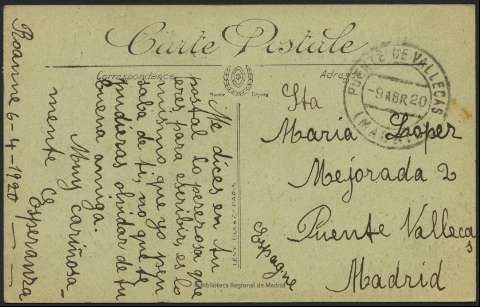 Carte Postale
Correspondance
Adresse
Me dices en tu
postal lo perezosa que
eres para escribir, es lo
mismo que yo pen
saba de ti, no que te
pudieras olvidar de tu
buena amiga.
Muy cariñosa-
mente
Esperanza
Roanne 6-4-1920
Sta
Maria Lopez
Mejorada 2
Puente Vallecas
Madrid
Espagne
PUENTE DE VALLECAS
-9 ABR 20
(MADRID)
Biblioteca Regional de Madrid